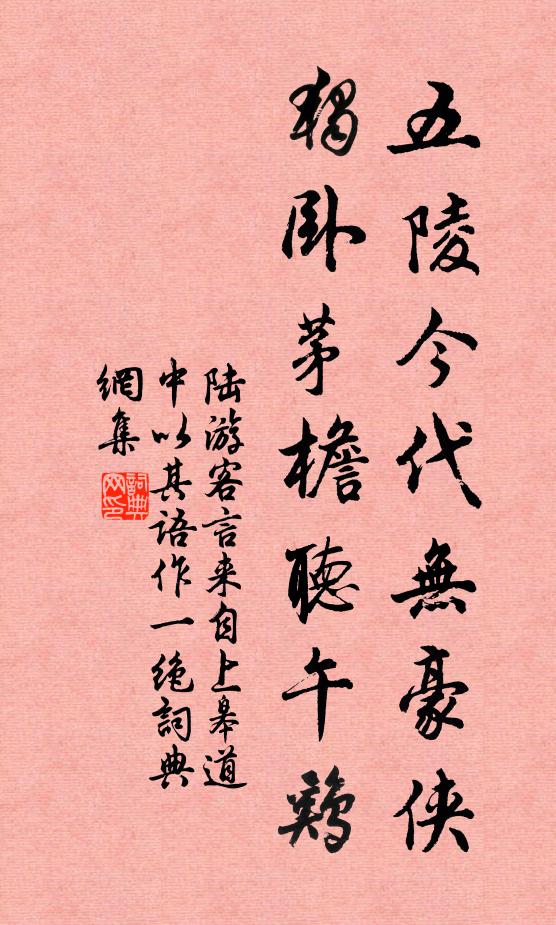 五陵今代無豪俠
獨卧茅檐聽午鷄
陆游客言来自上皋道
中以其语作一绝詞典
網集
詞典
网印